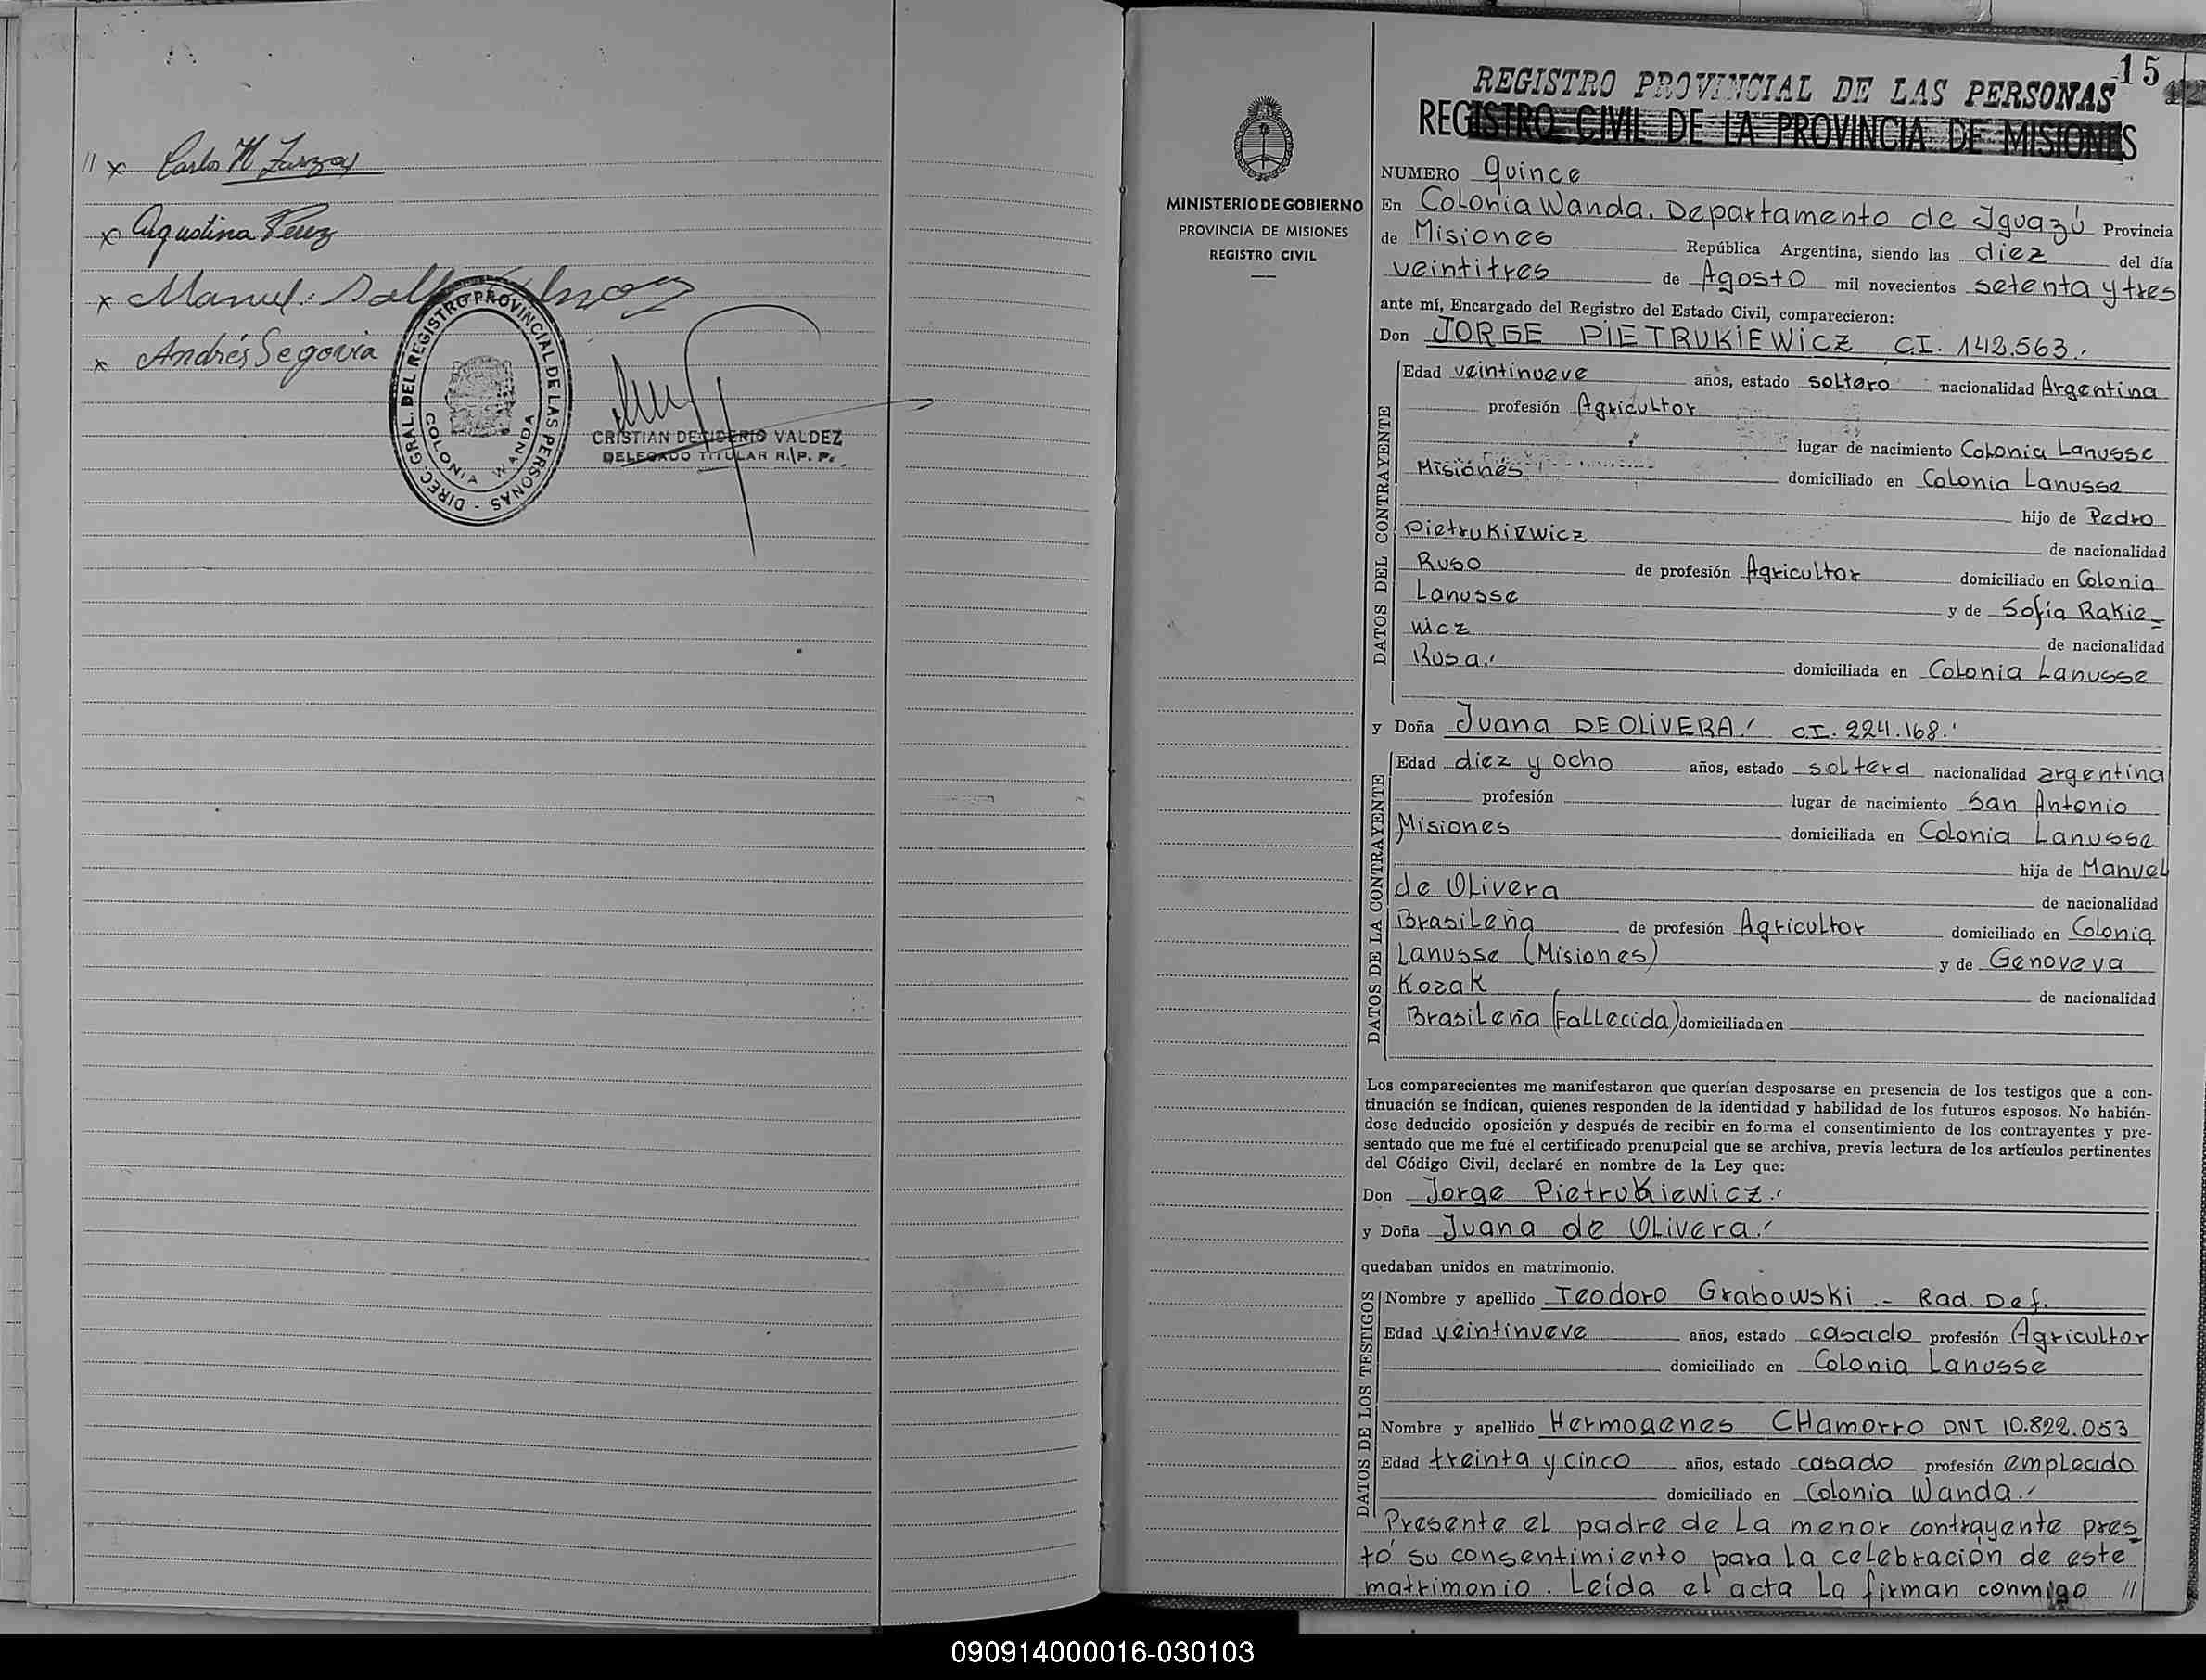 // x Carlos H
x Agustina Perez
x Manuel
x Andrés Segovia
DIREC. GRAL. DEL REGISTRO PROVINCIAL DE LAS PERSONAS -
COLONIA WANDA
CRISTIAN DESIDERIO VALDEZ
DELEGADO TITULAR R. P. P.
15
REGISTRO PROVINCIAL DE LAS PERSONAS
REGISTRO CIVIL DE LA PROVINCIA DE MISIONES
MINISTERIO DE GOBIERNO
PROVINCIA DE MISIONES
REGISTRO CIVIL
NUMERO Quince
En Colonia Wanda. Departamento de Iguazú Provincia
de Misiones República Argentina, siendo las diez del día
veintitres de Agosto mil novecientos setenta y tres
ante mí, Encargado del Registro del Estado Civil, comparecieron:
Don JORGE PIETRUKIEWICZ C.I. 142.563.
DATOS DEL CONTRAYENTE
Edad veintinueve años, estado soltero nacionalidad Argentina
profesión Agricultor
lugar de nacimiento Colonia Lanusse
Misiones domiciliado en Colonia Lanusse
hijo de Pedro
Pietrukiewicz de nacionalidad
Ruso de profesión Agricultor domiciliado en Colonia
Lanusse y de Sofía Rakie=
wicz de nacionalidad
Rusa. domiciliada en Colonia Lanusse
y Doña Juana DE OLIVERA C.I. 224.168.
DATOS DE LA CONTRAYENTE
Edad diez y ocho años, estado soltera nacionalidad argentina
profesión lugar de nacimiento San Antonio
Misiones domiciliada en Colonia Lanusse
hija de Manuel
de Olivera de nacionalidad
Brasileña de profesión Agricultor domiciliado en Colonia
Lanusse (Misiones) y de Genoveva
Kozak de nacionalidad
Brasileña (Fallecida) domiciliada en
Los comparecientes me manifestaron que querían desposarse en presencia de los testigos que a con-
tinuación se indican, quienes responden de la identidad y habilidad de los futuros esposos. No habién-
dose deducido oposición y después de recibir en forma el consentimiento de los contrayentes y pre-
sentado que me fué el certificado prenupcial que se archiva, previa lectura de los artículos pertinentes
del Código Civil, declaré en nombre de la Ley que:
Don Jorge Pietrukiewicz.
y Doña Juana de Olivera.
quedaban unidos en matrimonio.
DATOS DE LOS TESTIGOS
Nombre y apellido Teodoro Grabowski .- Rad. Def.
Edad veintinueve años, estado casado profesión Agricultor
domiciliado en Colonia Lanusse
Nombre y apellido Hermogenes CHamorro DNI 10.822.053
Edad treinta y cinco años, estado casado profesión empleado
domiciliado en Colonia Wanda.
Presente el padre de la menor contrayente pres
tó su consentimiento para la celebración de este
matrimonio. Leída el acta la firman conmigo //
090914000016-030103